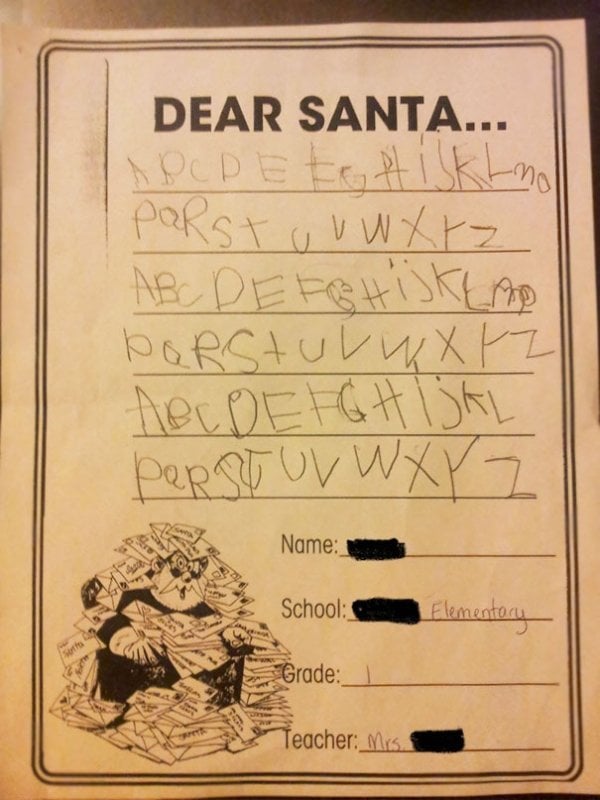 DEAR SANTA...
A B C D E F G H i j K L m o
P Q R S t U V W X Y Z
A B C D E F G H i j K L m o p
P Q R S t U V W X Y Z
A B C D E F G H i j K L
P Q R S T U V W X Y Z
Name:
School: Elementary
Grade: 1
Teacher: Mrs.
SANTA